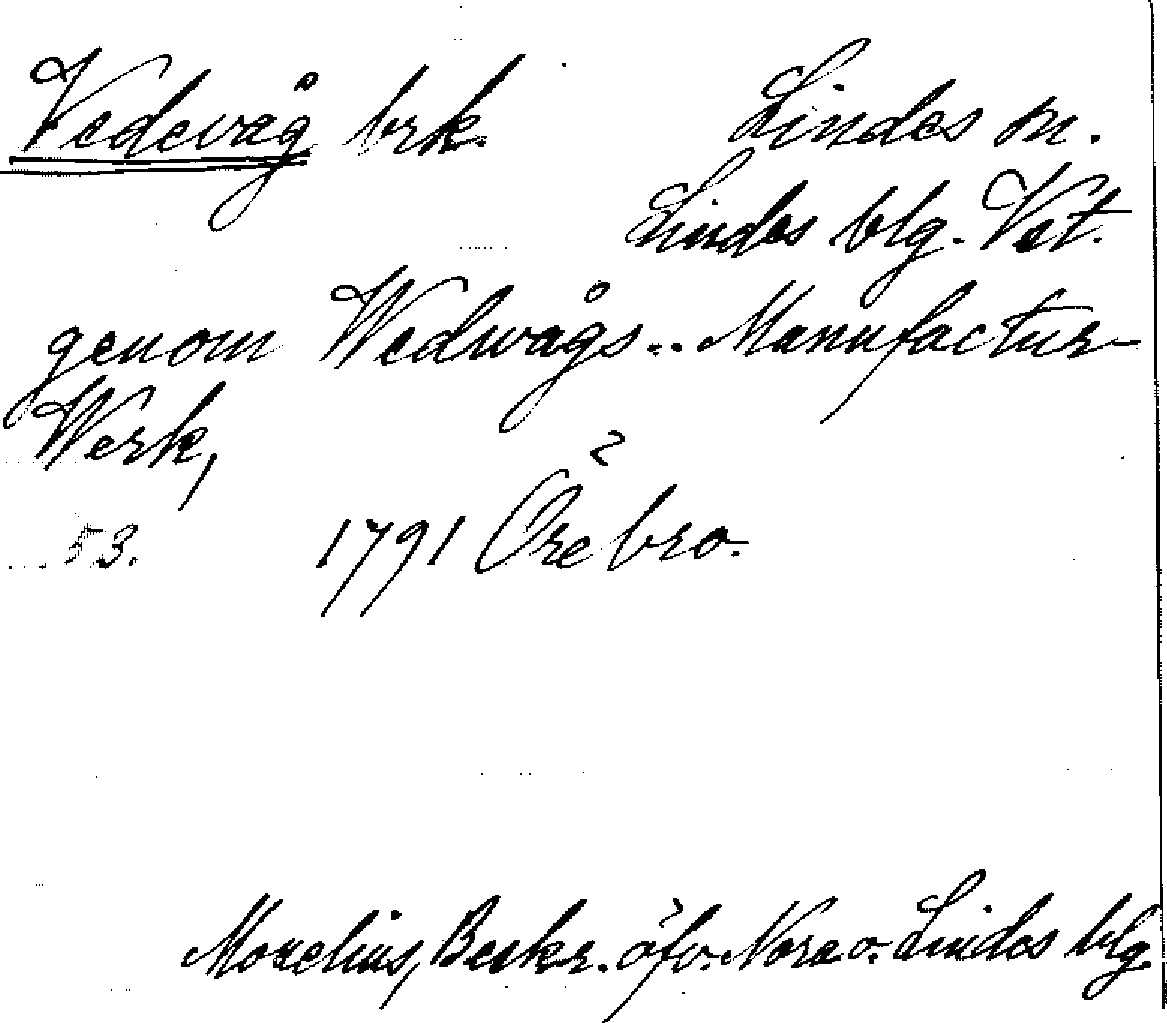 Vedevåg brk. Lindes sn.
Lindes blg. Vst.
genom Wedwågs.. Manufactur-
Werk,
53. 1791 Örebro.
Morelius, Beskr. öfv. Nora o. Lindes blg.